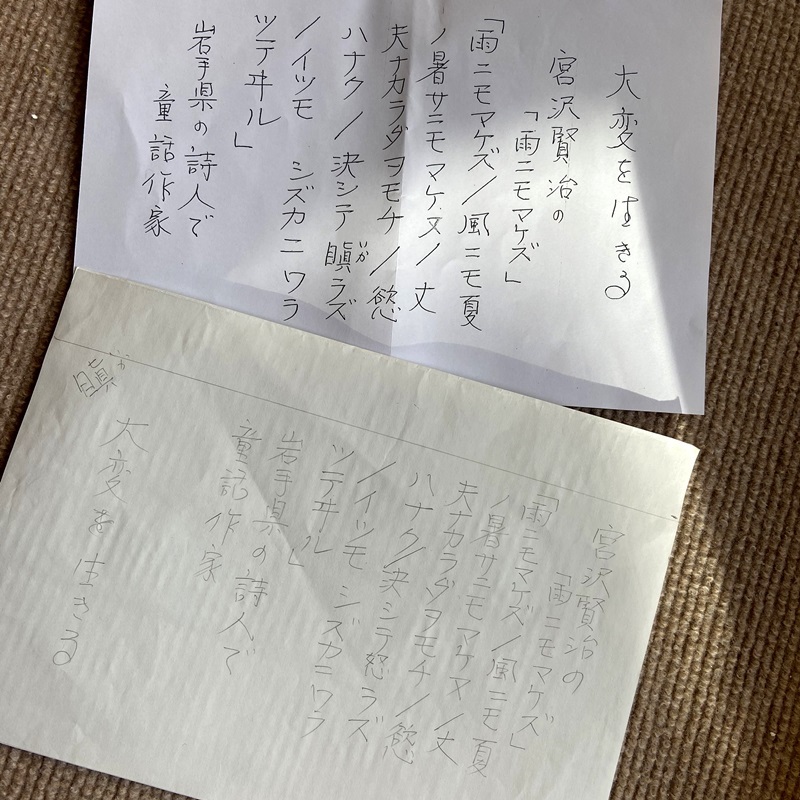 大変を生きる
宮沢賢治の
「雨ニモマケズ」
「雨ニモマケズ／風ニモ夏
ノ暑サニモマケヌ／丈
夫ナカラダヲモチ／慾
ハナク／決シテ瞋ラズ
いか
／イツモ　シズカニワラ
ツテヰル」
岩手県の詩人で
童話作家
宮沢賢治の
「雨ニモマケズ」
「雨ニモマケズ／風ニモ夏
ノ暑サニモマケヌ／丈
夫ナカラダヲモチ／慾
ハナク／決シテ怒ラズ
／イツモ　シズカニワラ
ツテヰル」
岩手県の詩人で
童話作家
大変を生きる
瞋